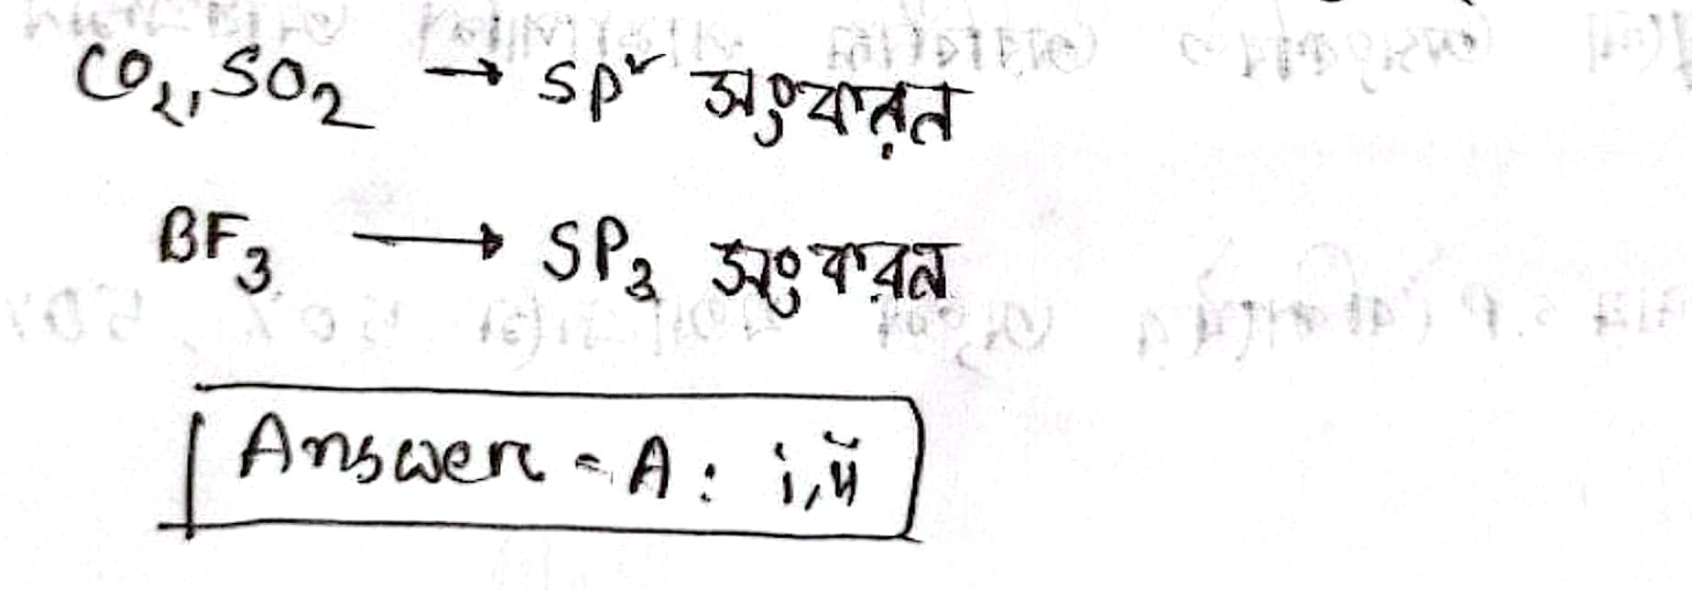 CO₂, SO₂ → SP² সংকরন
BF₃ → SP₃ সংকরন
Answer = A : i, ii